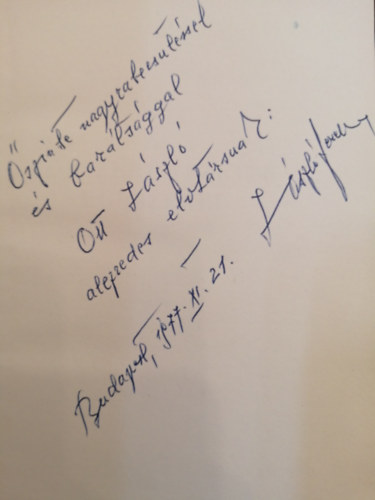 Őszinte nagyrabecsüléssel
és barátsággal
Ott László
alezredes elvtársnak:
László Jenő
Budapest, 1977. XI. 21.